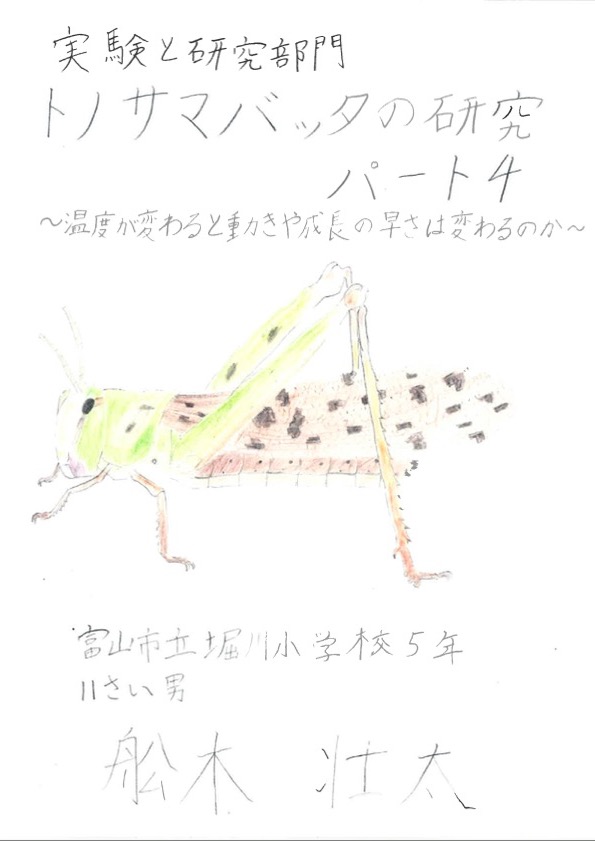 実験と研究部門
トノサマバッタの研究
パート4
～温度が変わると動きや成長の早さは変わるのか～
富山市立堀川小学校5年
11さい男
舩木 壮太